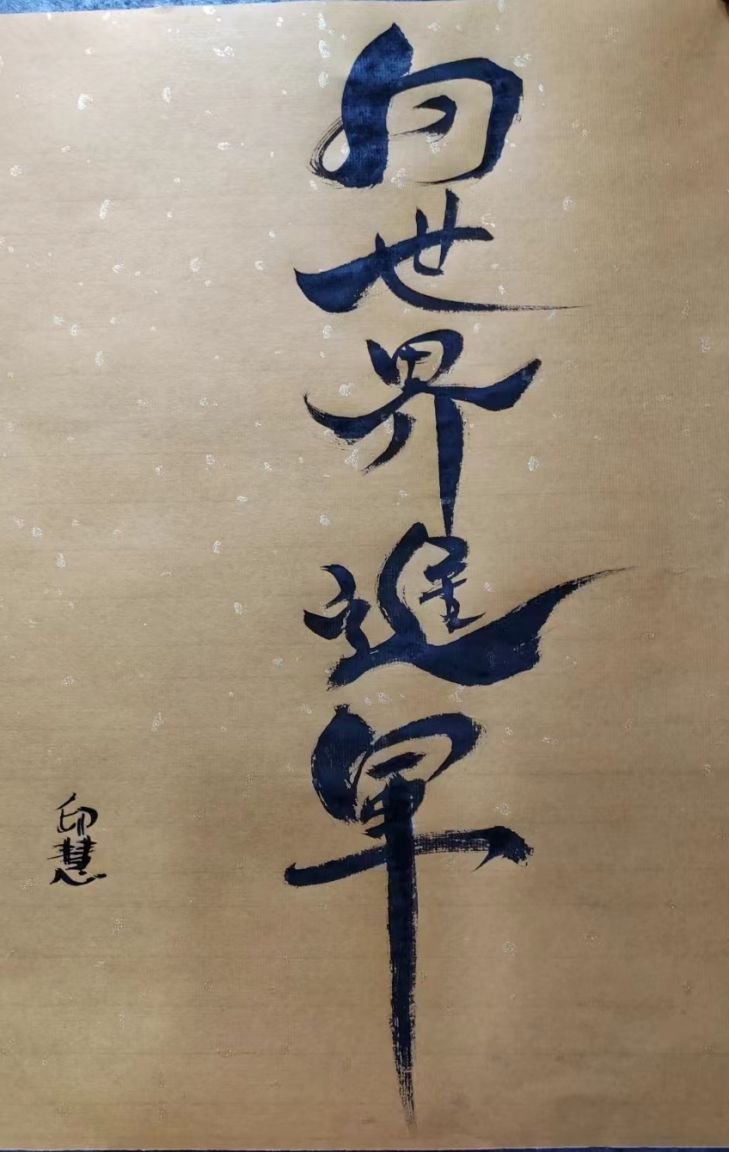 向世界進軍
印慧